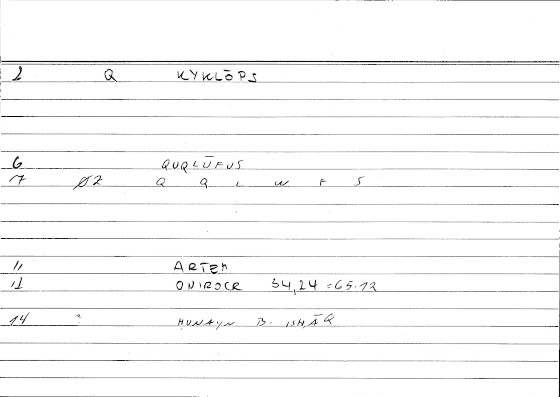 1 Q KYKLŌPS
6 QUQLŪFUS
7 02 Q Q L W F S
11 ARTEM
12 ONIROCR 34,24 = 65.12
14 HUNAYN B. ISHĀQ